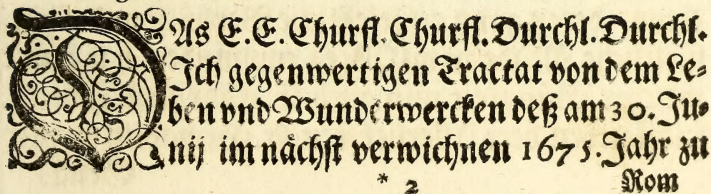 DAs E.E. Churfl. Churfl. Durchl. Durchl.
Ich gegenwertigen Tractat von dem Le-
ben vnd Wunderwercken deß am 30. Ju-
nij im nächst verwichnen 1675. Jahr zu
* 2 Rom